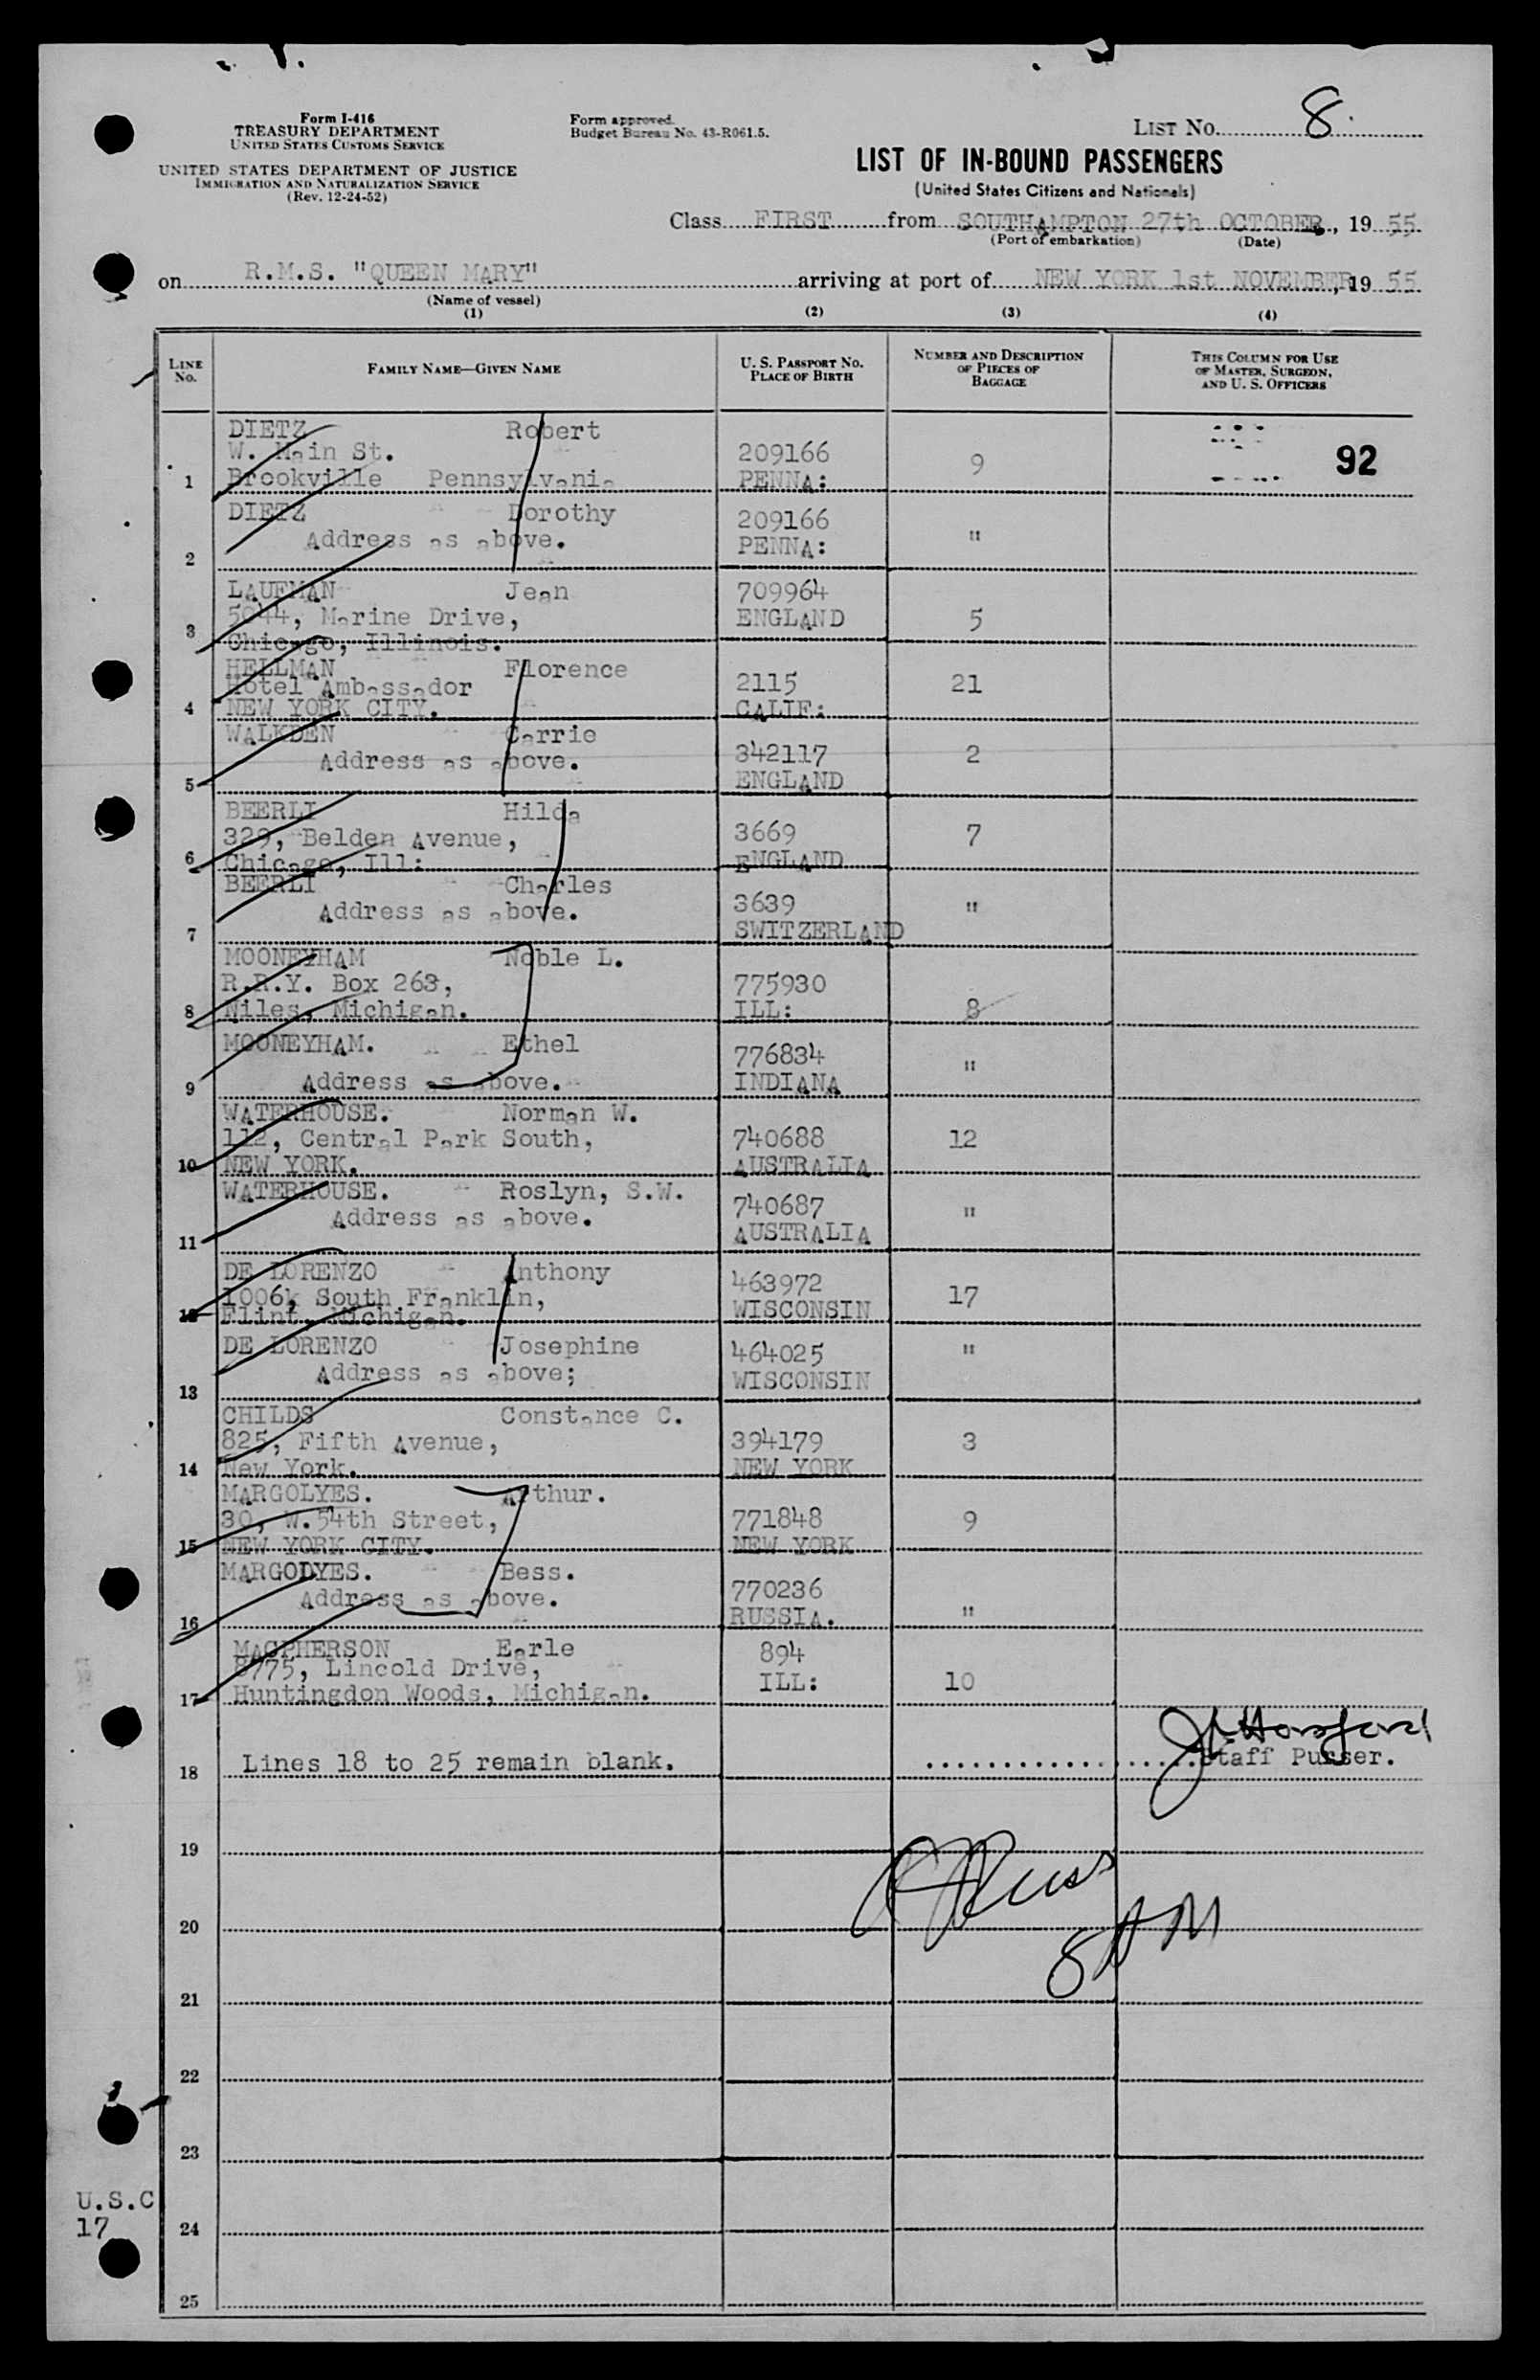 Form I-416
TREASURY DEPARTMENT
UNITED STATES CUSTOMS SERVICE
UNITED STATES DEPARTMENT OF JUSTICE
IMMIGRATION AND NATURALIZATION SERVICE
(Rev. 12-24-52)
Form approved.
Budget Bureau No. 43-R061.5.
LIST NO. 8.
LIST OF IN-BOUND PASSENGERS
(United States Citizens and Nationals)
Class FIRST from SOUTHAMPTON 27th OCTOBER, 19 55
(Port of embarkation) (Date)
on R.M.S. "QUEEN MARY" arriving at port of NEW YORK 1st NOVEMBER, 19 55
(Name of vessel)
(1) (2) (3) (4)
LINE NO. FAMILY NAME—GIVEN NAME U. S. PASSPORT NO. PLACE OF BIRTH NUMBER AND DESCRIPTION OF PIECES OF BAGGAGE THIS COLUMN FOR USE OF MASTER, SURGEON, AND U. S. OFFICERS
DIETZ Robert
W. Main St. 209166 9 92
1 Brookville Pennsylvania PENNA:
DIETZ Dorothy 209166
Address as above. PENNA: "
2
LAUFMAN Jean 709964
5044, Marine Drive, ENGLAND 5
3 Chicago, Illinois.
HELLMAN Florence
Hotel Ambassador 2115 21
4 NEW YORK CITY. CALIF:
WALKDEN Carrie
Address as above. 342117 2
5 ENGLAND
BEERLI Hilda
329, Belden Avenue, 3669 7
6 Chicago, Ill: ENGLAND
BEERLI Charles
Address as above. 3639 "
7 SWITZERLAND
MOONEYHAM Noble L.
R.R.Y. Box 263, 775930
8 Niles, Michigan. ILL: 8
MOONEYHAM. Ethel 776834 "
9 Address as above. INDIANA
WATERHOUSE. Norman W.
112, Central Park South, 740688 12
10 NEW YORK. AUSTRALIA
WATERHOUSE. Roslyn, S.W. 740687
Address as above. "
11 AUSTRALIA
DE LORENZO Anthony 463972
1006k South Franklin, 17
12 Flint, Michigan. WISCONSIN
DE LORENZO Josephine 464025 "
Address as above; WISCONSIN
13
CHILDS Constance C.
825, Fifth Avenue, 394179 3
14 New York. NEW YORK
MARGOLYES. Arthur.
30, W. 54th Street, 771848 9
15 NEW YORK CITY. NEW YORK
MARGODYES. Bess. 770236
Address as above. RUSSIA. "
16
MACPHERSON Earle 894
8775, Lincold Drive, ILL: 10
17 Huntingdon Woods, Michigan.
18 Lines 18 to 25 remain blank. Staff Purser.
19
20
8 AM
21
22
23
U.S.C
17
24
25